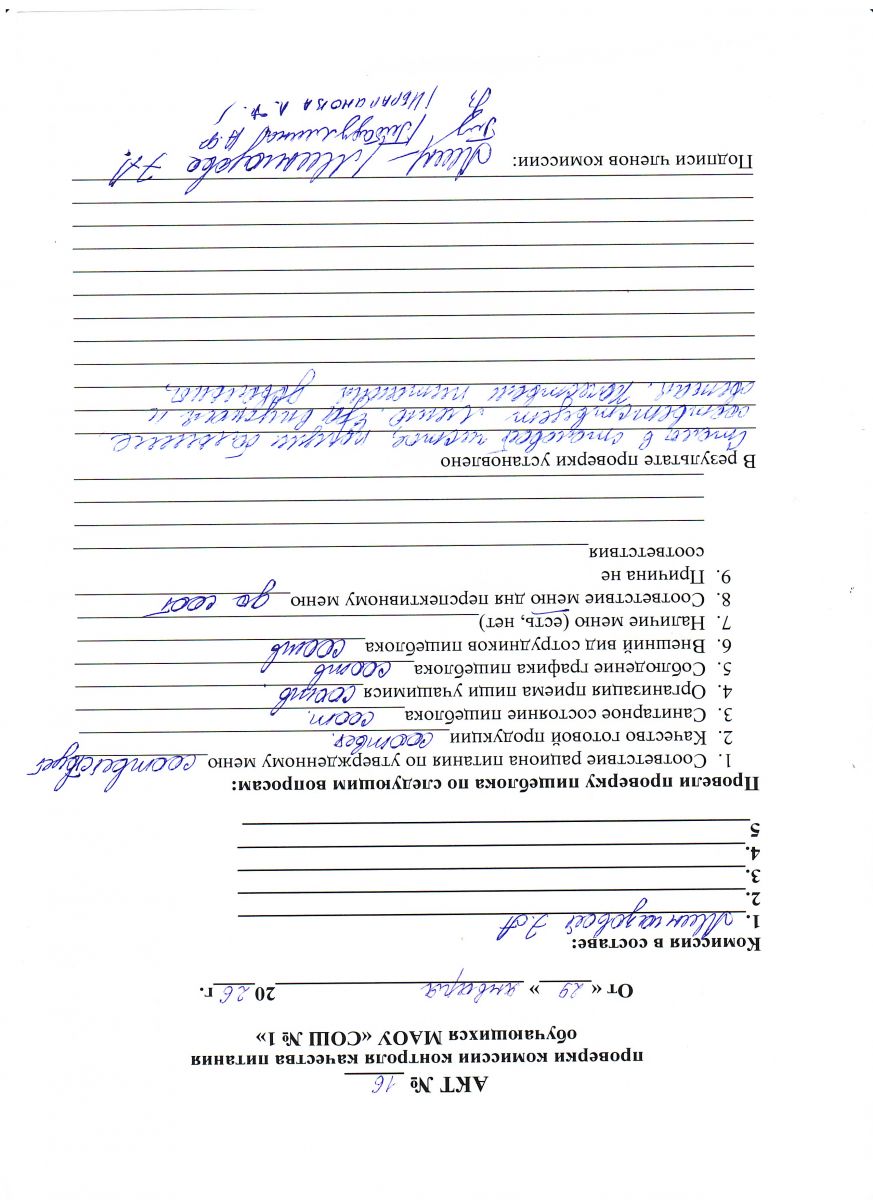 АКТ № 16
проверки комиссии контроля качества питания
обучающихся МАОУ «СОШ № 1»
От « 29 » января 20 26 г.
Комиссия в составе:
1. Минчазовой Э.А
2.
3.
4.
5
Провели проверку пищеблока по следующим вопросам:
1. Соответствие рациона питания по утвержденному меню соответствует
2. Качество готовой продукции соответ.
3. Санитарное состояние пищеблока соот.
4. Организация приема пищи учащимися соотв.
5. Соблюдение графика пищеблока соотв
6. Внешний вид сотрудников пищеблока соотв
7. Наличие меню (есть, нет)
8. Соответствие меню дня перспективному меню да соот
9. Причина не
соответствия
В результате проверки установлено
в столовой чисто, порции большие
соответствует меню. Еда вкусная и
питания
Подписи членов комиссии: Э.А.
Гибадуллина
Ибрагимова Л.Ф.